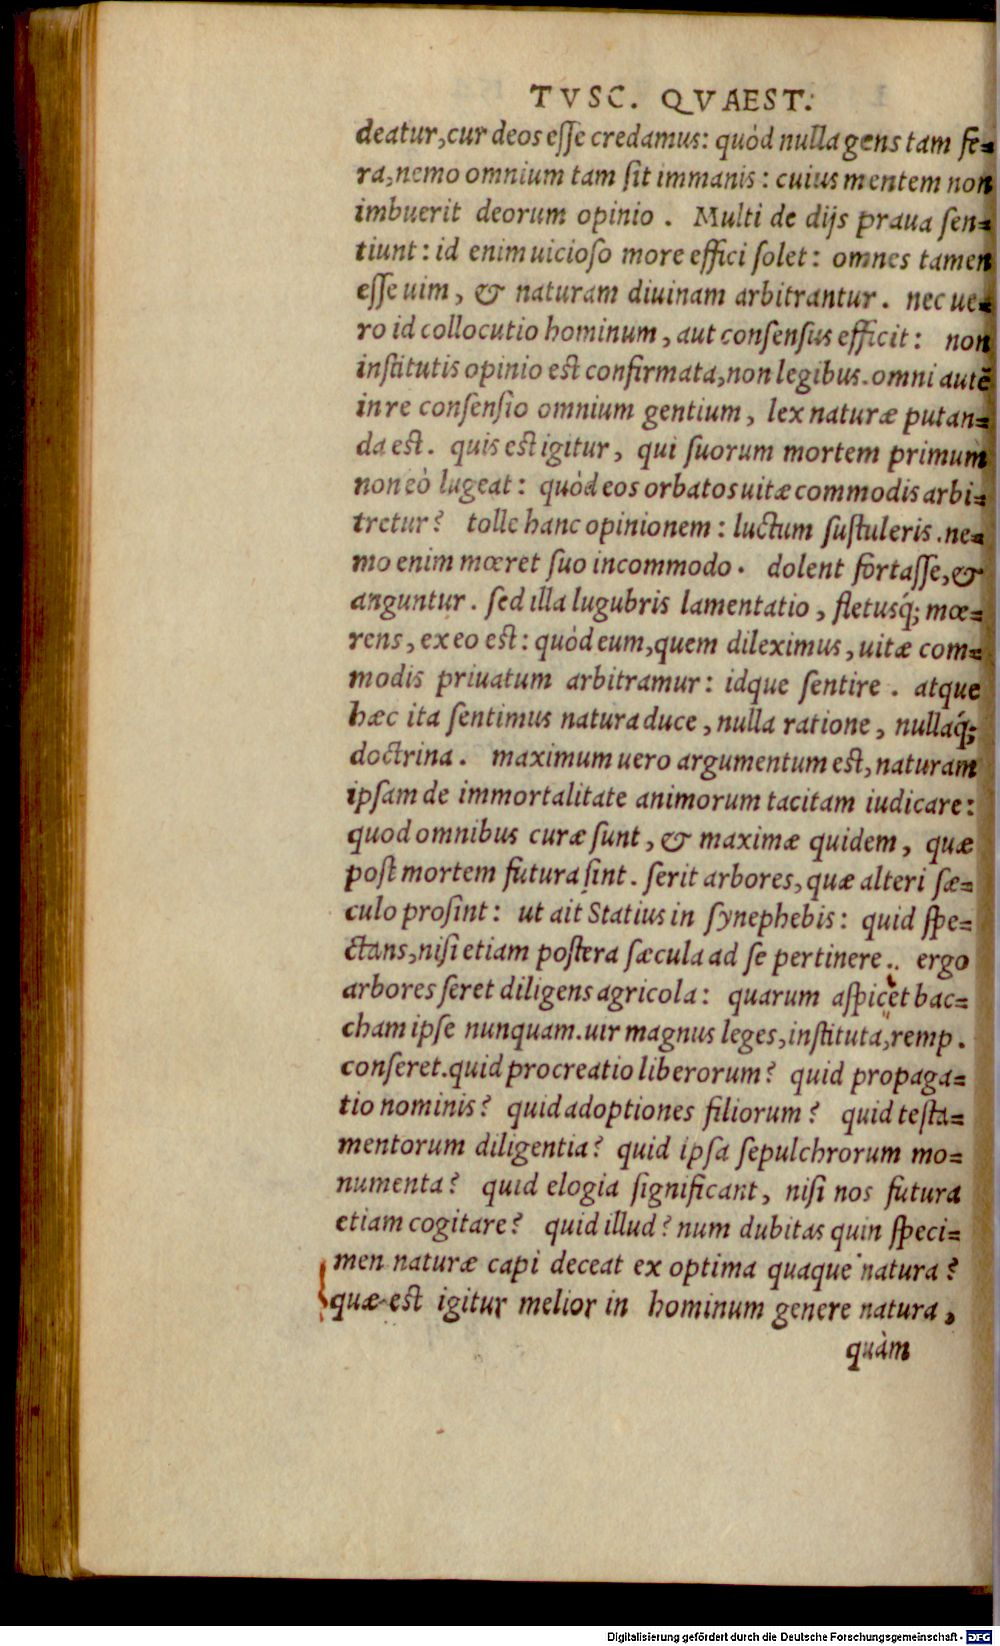 TVSC. QVAEST.
deatur, cur deos esse credamus: quòd nulla gens tam fe=
ra, nemo omnium tam sit immanis: cuius mentem non
imbuerit deorum opinio. Multi de dijs praua sen=
tiunt: id enim uicioso more effici solet: omnes tamen
esse uim, & naturam diuinam arbitrantur. nec ue=
ro id collocutio hominum, aut consensus efficit: non
institutis opinio est confirmata, non legibus. omni autẽ
in re consensio omnium gentium, lex naturæ putan=
da est. quis est igitur, qui suorum mortem primum
non eò lugeat: quòd eos orbatos uitæ commodis arbi=
tretur? tolle hanc opinionem: luctum sustuleris. ne=
mo enim mœret suo incommodo. dolent fortasse, &
anguntur. sed illa lugubris lamentatio, fletusq́; mœ=
rens, ex eo est: quòd eum, quem dileximus, uitæ com=
modis priuatum arbitramur: idque sentire. atque
hæc ita sentimus natura duce, nulla ratione, nullaq́;
doctrina. maximum uero argumentum est, naturam
ipsam de immortalitate animorum tacitam iudicare:
quod omnibus curæ sunt, & maximæ quidem, quæ
post mortem futura sint. serit arbores, quæ alteri sæ=
culo prosint: ut ait Statius in synephebis: quid spe=
ctans, nisi etiam postera sæcula ad se pertinere.. ergo
arbores seret diligens agricola: quarum aspicet bac=
cham ipse nunquam. uir magnus leges, instituta, remp.
conseret. quid procreatio liberorum? quid propaga=
tio nominis? quid adoptiones filiorum? quid testa=
mentorum diligentia? quid ipsa sepulchrorum mo=
numenta? quid elogia significant, nisi nos futura
etiam cogitare? quid illud? num dubitas quin speci=
men naturæ capi deceat ex optima quaque natura?
quæ est igitur melior in hominum genere natura,
quàm
Digitalisierung gefördert durch die Deutsche Forschungsgemeinschaft - DFG